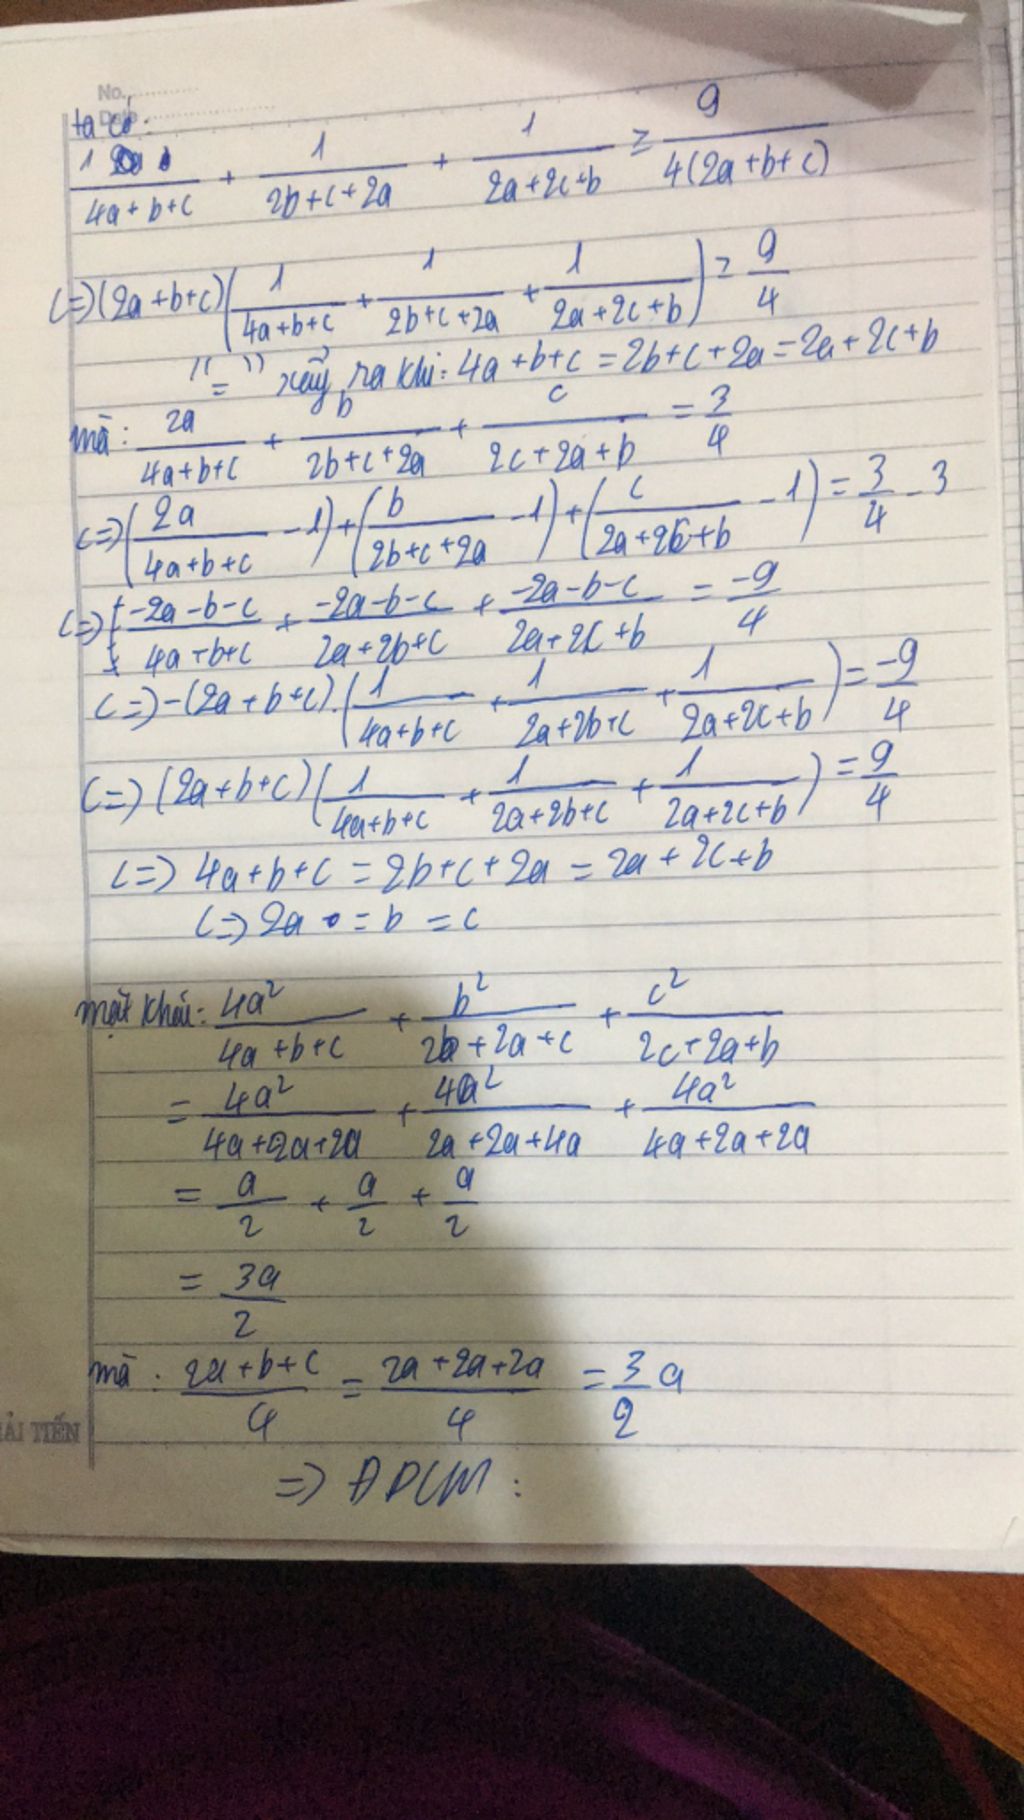 No.
Date
ta có:
1/(4a+b+c) + 1/(2b+c+2a) + 1/(2a+2c+b) ≥ 9/(4(2a+b+c))
(=) (2a+b+c)(1/(4a+b+c) + 1/(2b+c+2a) + 1/(2a+2c+b)) ≥ 9/4
"=" xảy ra khi: 4a+b+c = 2b+c+2a = 2a+2c+b
mà: 2a/(4a+b+c) + b/(2b+c+2a) + c/(2c+2a+b) = 3/4
(=) (2a/(4a+b+c) - 1) + (b/(2b+c+2a) - 1) + (c/(2a+2c+b) - 1) = 3/4 - 3
(=) (-2a-b-c)/(4a+b+c) + (-2a-b-c)/(2a+2b+c) + (-2a-b-c)/(2a+2c+b) = -9/4
(=) -(2a+b+c).(1/(4a+b+c) + 1/(2a+2b+c) + 1/(2a+2c+b)) = -9/4
(=) (2a+b+c)(1/(4a+b+c) + 1/(2a+2b+c) + 1/(2a+2c+b)) = 9/4
(=) 4a+b+c = 2b+c+2a = 2a+2c+b
(=) 2a = b = c
mặt khác: 4a²/(4a+b+c) + b²/(2b+2a+c) + c²/(2c+2a+b)
= 4a²/(4a+2a+2a) + 4a²/(2a+2a+4a) + 4a²/(4a+2a+2a)
= a/2 + a/2 + a/2
= 3a/2
mà: (2a+b+c)/4 = (2a+2a+2a)/4 = 3/2 a
ẢI TIẾN
=) ĐPCM: